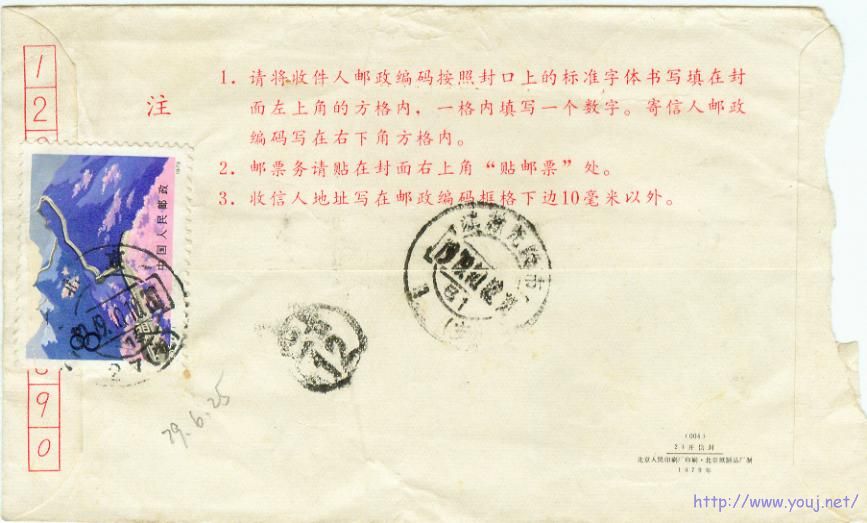 1
2
9
0
注
1. 请将收件人邮政编码按照封口上的标准字体书写填在封
面左上角的方格内，一格内填写一个数字。寄信人邮政
编码写在右下角方格内。
2. 邮票务请贴在封面右上角“贴邮票”处。
3. 收信人地址写在邮政编码框格下边10毫米以外。
中国人民邮政
8
北
12
79.6.25
(004)
北京人民印刷厂印刷·北京纸制品厂制
1979年
http://www.youj.net/